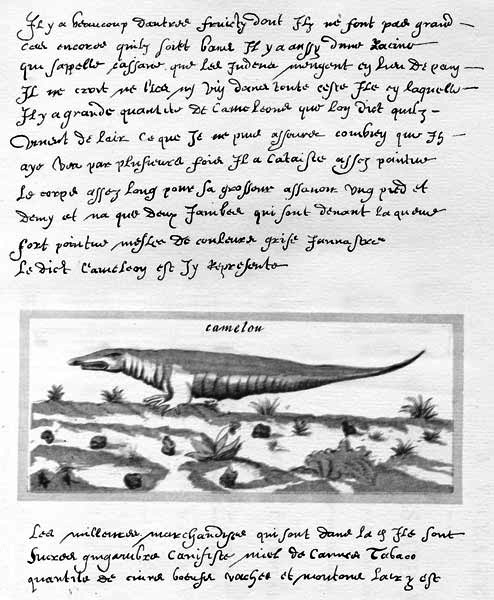 Il y a beaucoup dautres fruictz dont Ilz ne font pas grand
cas encores quilz soict bons Il y a aussy dune Racine
qui sappelle cassave que les Indiens mengent en lieu de pain
Il ne croit ne bled ny vin dans toute ceste Isle en laquelle
Il y a grande quantite de Cameleons que lon dict quilz
vivent de lair ce que Je ne puis asseurer combien que Ien
aye veu par plusieurs fois Il a la teste assez pointue
Le corps assez long pour sa grosseur assavoir ung pied et
demy et na que deux Jambes qui sont devant la queue
fort pointue meslee de couleurs grise Jaunastre
Le dict Cameleon est Icy Represente
camelou
Les meilleures marchandyses qui sont dans la Isle sont
sucres gingembre Canifiste miel de Cannes Tabaco
quantite de cuirs boeufs vaches et moutons Lair y est